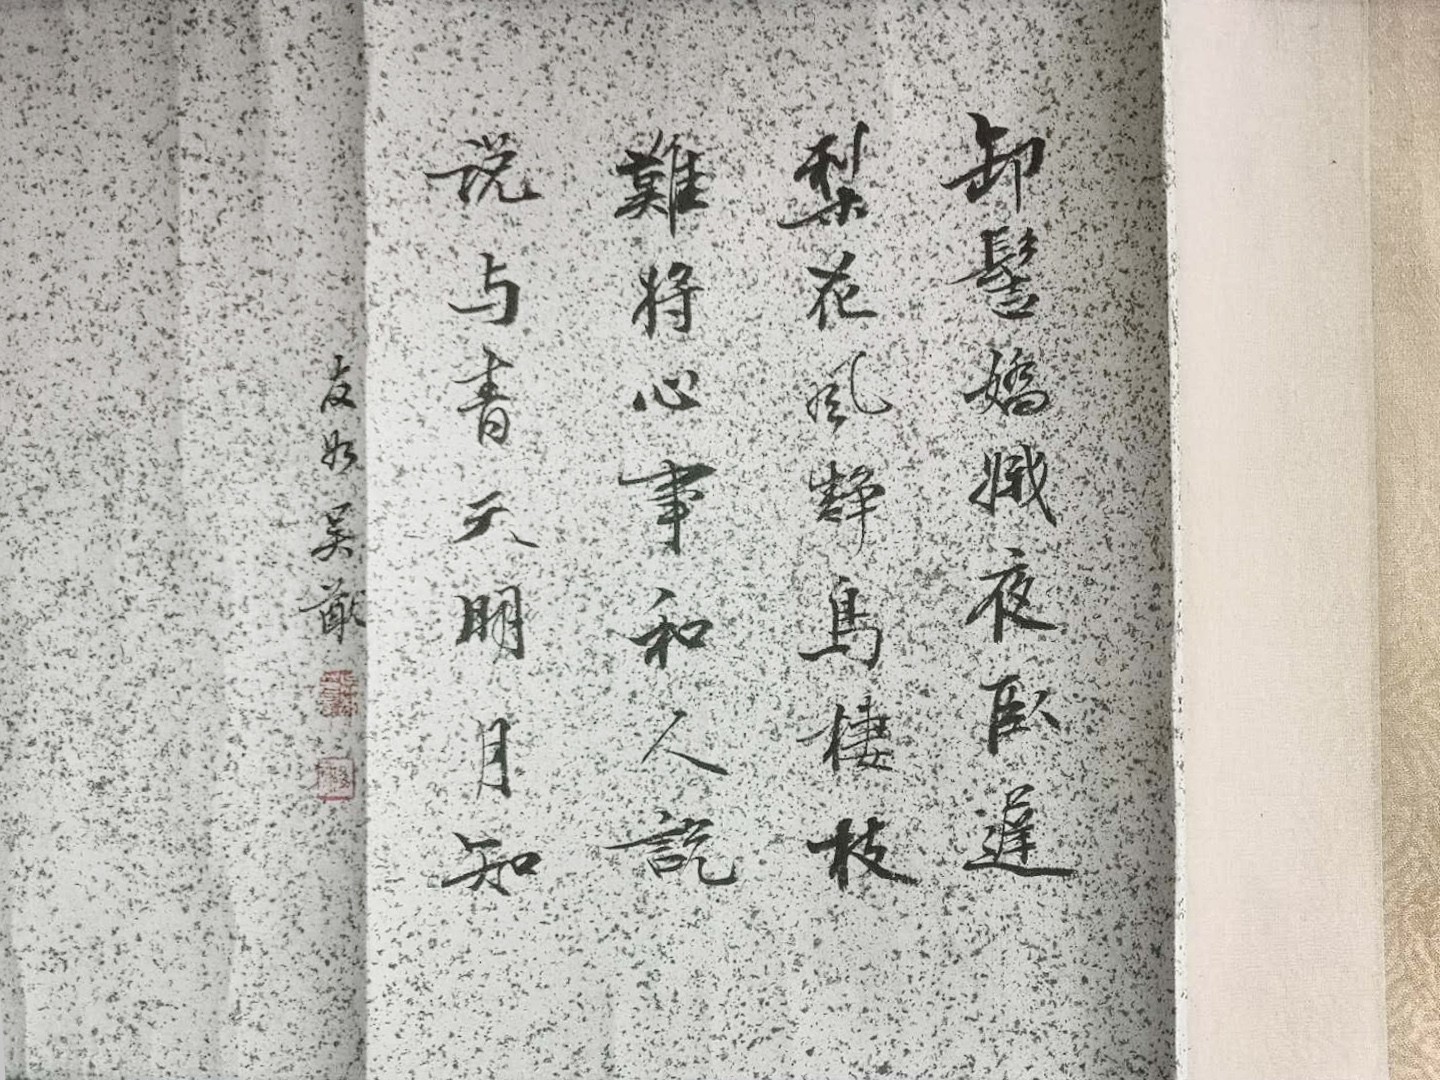 卸髻嬌娥夜臥遲
梨花風靜鳥棲枝
難將心事和人說
说与青天明月知
友如吴猷